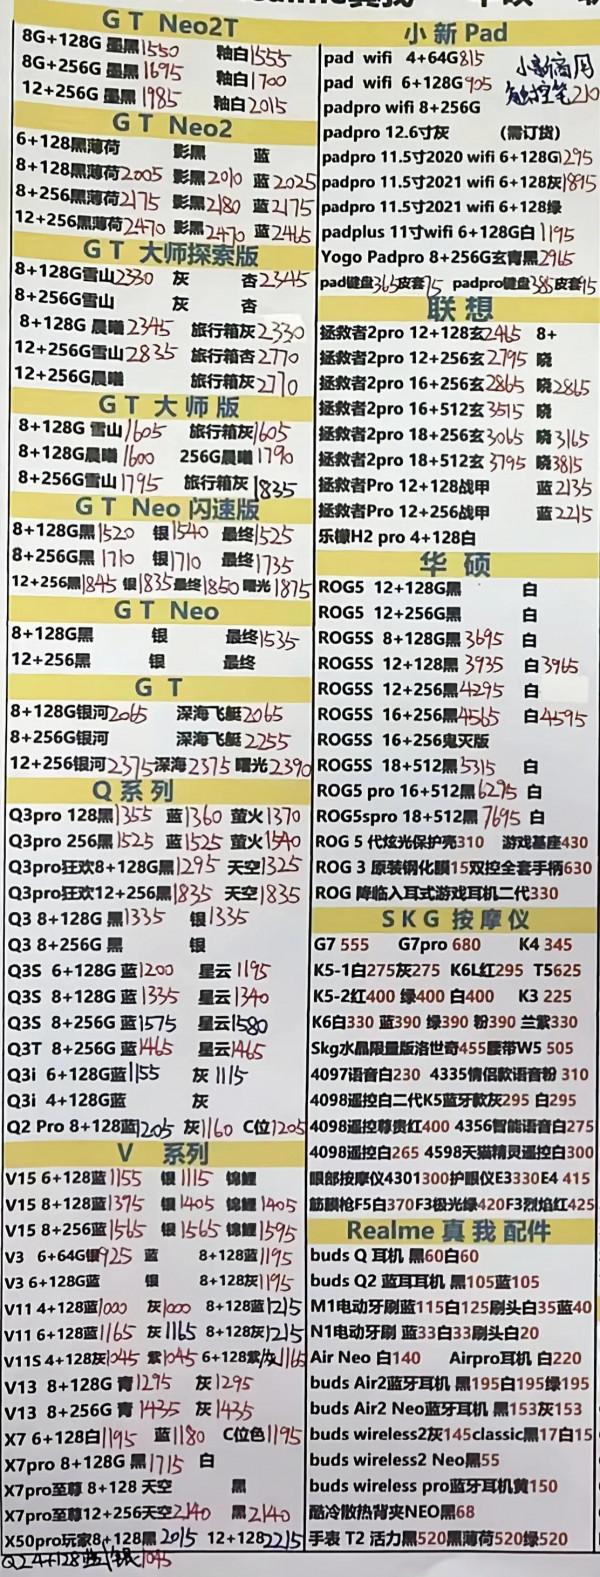 GT Neo2T
8G+128G 墨黑1550 釉白1555
8G+256G 墨黑1695 釉白1700
12+256G 墨黑1985 釉白2015
GT Neo2
6+128黑薄荷 影黑 蓝
8+128黑薄荷2005 影黑2010 蓝2025
8+256黑薄荷2175 影黑2180 蓝2175
12+256黑薄荷2470 影黑2470 蓝2465
GT 大师探索版
8+128G雪山2330 灰 杏2345
8+256G雪山 灰 杏
8+128G 晨曦2345 旅行箱灰2330
12+256G雪山2835 旅行箱杏2770
12+256G晨曦 旅行箱灰2770
GT 大师版
8+128G 雪山1605 旅行箱灰1605
8+128G晨曦1600 256G晨曦1790
8+256G雪山1795 旅行箱灰1835
GT Neo 闪速版
8+128G黑1520 银1540 最终1525
8+256G黑1710 银1710 最终1735
12+256黑1845 银1835最终1850 曙光1875
GT Neo
8+128G黑 银 最终1535
12+256黑 银 最终
GT
8+128G银河2065 深海飞艇2065
8+256G银河 深海飞艇2255
12+256银河2375深海2375 曙光2390
Q 系列
Q3pro 128黑1355 蓝1360 萤火1370
Q3pro 256黑1525 蓝1525 萤火1540
Q3pro狂欢8+128G黑1295 天空1325
Q3pro狂欢12+256黑1835 天空1835
Q3 8+128G 黑1335 银1335
Q3 8+256G 黑 银
Q3S 6+128G 蓝1200 星云1195
Q3S 8+128G 蓝1335 星云1340
Q3S 8+256G 蓝1575 星云1580
Q3T 8+256G 蓝1465 星云1465
Q3i 6+128G蓝1155 灰1115
Q3i 4+128G蓝 灰
Q2 Pro 8+128蓝1205 灰1160 C位1205
V 系列
V15 6+128蓝1155 银1115 锦鲤
V15 8+128蓝1395 银1405 锦鲤1405
V15 8+256蓝1565 银1565 锦鲤1595
V3 6+64G银925 蓝 8+128蓝1195
V3 6+128G蓝 银 8+128灰1195
V11 4+128蓝1000 灰1000 8+128蓝1215
V11 6+128蓝1165 灰1165 8+128灰1215
V11S 4+128灰1045 紫1045 6+128紫/灰1165
V13 8+128G 青1295 灰1295
V13 8+256G 青1435 灰1435
X7 6+128白1195 蓝1180 C位色1195
X7pro 8+128G 黑1715 白
X7pro至尊8+128 天空 黑
X7pro至尊12+256天空2140 黑2140
X50pro玩家8+128黑2015 12+1282215
Q2 4+128蓝/银1095
小新 Pad
pad wifi 4+64G815
pad wifi 6+128G905
小新商用触控笔210
padpro wifi 8+256G
padpro 12.6寸灰 (需订货)
padpro 11.5寸2020 wifi 6+128G1295
padpro 11.5寸2021 wifi 6+128灰1895
padpro 11.5寸2021 wifi 6+128绿
padplus 11寸wifi 6+128G白1195
Yogo Padpro 8+256G玄青黑2965
pad键盘365皮套75 padpro键盘385皮套95
联想
拯救者2pro 12+128玄2465 8+
拯救者2pro 12+256玄2795 晓
拯救者2pro 16+256玄2865 晓2865
拯救者2pro 16+512玄3515 晓
拯救者2pro 18+256玄3065 晓3165
拯救者2pro 18+512玄3795 晓3815
拯救者Pro 12+128战甲 蓝2135
拯救者Pro 12+256战甲 蓝2215
乐檬H2 pro 4+128白
华硕
ROG5 12+128G黑 白
ROG5 12+256G黑 白
ROG5S 8+128G黑3695 白
ROG5S 12+128黑3935 白3965
ROG5S 12+256黑4295 白
ROG5S 16+256黑4565 白4595
ROG5S 16+256鬼灭版
ROG5S 18+512黑5315 白
ROG5 pro 16+512黑6295 白
ROG5spro 18+512黑7695 白
ROG 5 代炫光保护壳310 游戏基座430
ROG 3 原装钢化膜15双控全套手柄630
ROG 降临入耳式游戏耳机二代330
SKG 按摩仪
G7 555 G7pro 680 K4 345
K5-1白275灰275 K6L红295 T5625
K5-2红400 绿400 白400 K3 225
K6白330 蓝390 绿390 粉390 兰紫330
Skg水晶限量版洛世奇455腰带W5 505
4097语音白230 4335情侣款语音粉 310
4098遥控白二代K5蓝牙款灰295 白295
4098遥控尊贵红400 4356智能语音白275
4098遥控白265 4598天猫精灵遥控白300
眼部按摩仪4301300护眼仪E3330E4 415
筋膜枪F5白370F3极光绿420F3烈焰红425
Realme 真我 配件
buds Q 耳机 黑60白60
buds Q2 蓝耳耳机 黑105蓝105
M1电动牙刷蓝115白125刷头白35蓝40
N1电动牙刷 蓝33白33刷头白20
Air Neo 白140 Airpro耳机 白220
buds Air2蓝牙耳机 黑195白195绿195
buds Air2 Neo蓝牙耳机 黑153灰153
buds wireless2灰145classic黑17白15
buds wireless2 Neo黑55
buds wireless pro蓝牙耳机黄150
酷冷散热背夹NEO黑68
手表 T2 活力黑520黑薄荷520绿520